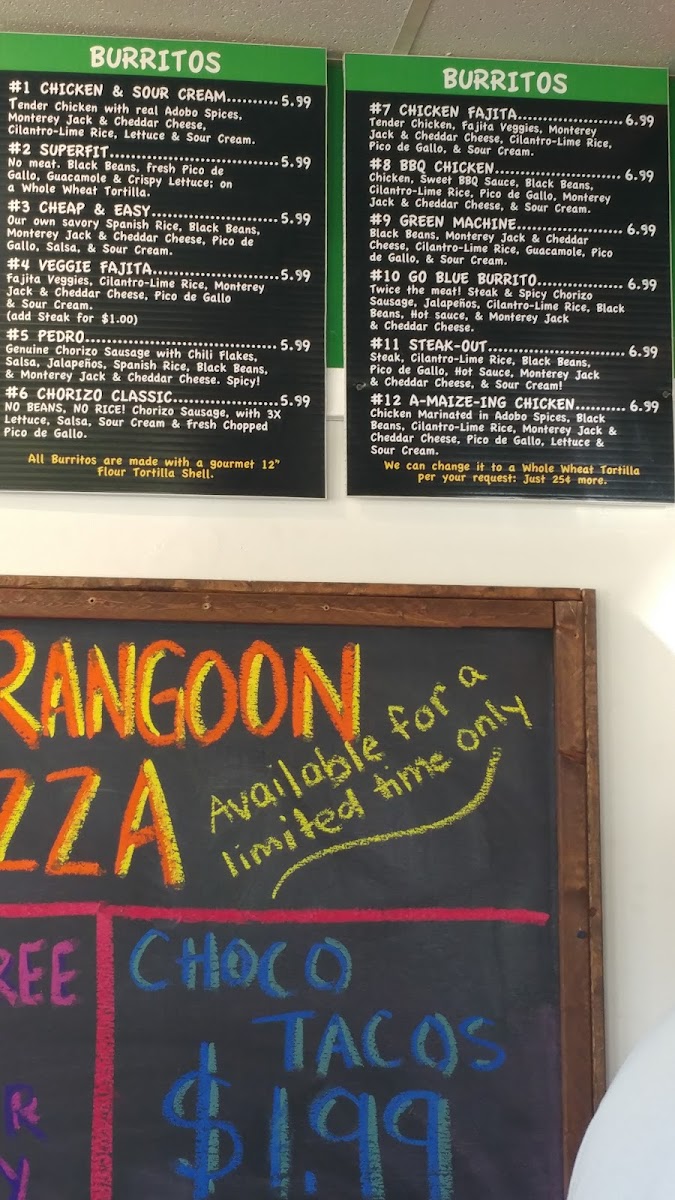 BURRITOS
#1 CHICKEN & SOUR CREAM..........5.99
Tender Chicken with real Adobo Spices,
Monterey Jack & Cheddar Cheese,
Cilantro-Lime Rice, Lettuce & Sour Cream.
#2 SUPERFIT..................................5.99
No meat. Black Beans, Fresh Pico de
Gallo, Guacamole & Crispy Lettuce; on
a Whole Wheat Tortilla.
#3 CHEAP & EASY.........................5.99
Our own savory Spanish Rice, Black Beans,
Monterey Jack & Cheddar Cheese, Pico de
Gallo, Salsa, & Sour Cream.
#4 VEGGIE FAJITA.........................5.99
Fajita Veggies, Cilantro-Lime Rice, Monterey
Jack & Cheddar Cheese, Pico de Gallo
& Sour Cream.
(add Steak for $1.00)
#5 PEDRO......................................5.99
Genuine Chorizo Sausage with Chili Flakes,
Salsa, Jalapeños, Spanish Rice, Black Beans,
& Monterey Jack & Cheddar Cheese. Spicy!
#6 CHORIZO CLASSIC.....................5.99
NO BEANS, NO RICE! Chorizo Sausage, with 3X
Lettuce, Salsa, Sour Cream & Fresh Chopped
Pico de Gallo.
All Burritos are made with a gourmet 12"
Flour Tortilla Shell.
BURRITOS
#7 CHICKEN FAJITA.....................6.99
Tender Chicken, Fajita Veggies, Monterey
Jack & Cheddar Cheese, Cilantro-Lime Rice,
Pico de Gallo, & Sour Cream.
#8 BBQ CHICKEN.........................6.99
Chicken, Sweet BBQ Sauce, Black Beans,
Cilantro-Lime Rice, Pico de Gallo, Monterey
Jack & Cheddar Cheese, & Sour Cream.
#9 GREEN MACHINE.....................6.99
Black Beans, Monterey Jack & Cheddar
Cheese, Cilantro-Lime Rice, Guacamole, Pico
de Gallo, & Sour Cream.
#10 GO BLUE BURRITO.................6.99
Twice the meat! Steak & Spicy Chorizo
Sausage, Jalapeños, Cilantro-Lime Rice, Black
Beans, Hot sauce, & Monterey Jack
& Cheddar Cheese.
#11 STEAK-OUT...........................6.99
Steak, Cilantro-Lime Rice, Black Beans,
Pico de Gallo, Hot Sauce, Monterey Jack
& Cheddar Cheese, & Sour Cream!
#12 A-MAIZE-ING CHICKEN..........6.99
Chicken Marinated in Adobo Spices, Black
Beans, Cilantro-Lime Rice, Monterey Jack &
Cheddar Cheese, Pico de Gallo, Lettuce &
Sour Cream.
We can change it to a Whole Wheat Tortilla
per your request: Just 25¢ more.
RANGOON
ZZA
Available for a
limited time only
REE
R
Y
CHOCO
TACOS
$1.99